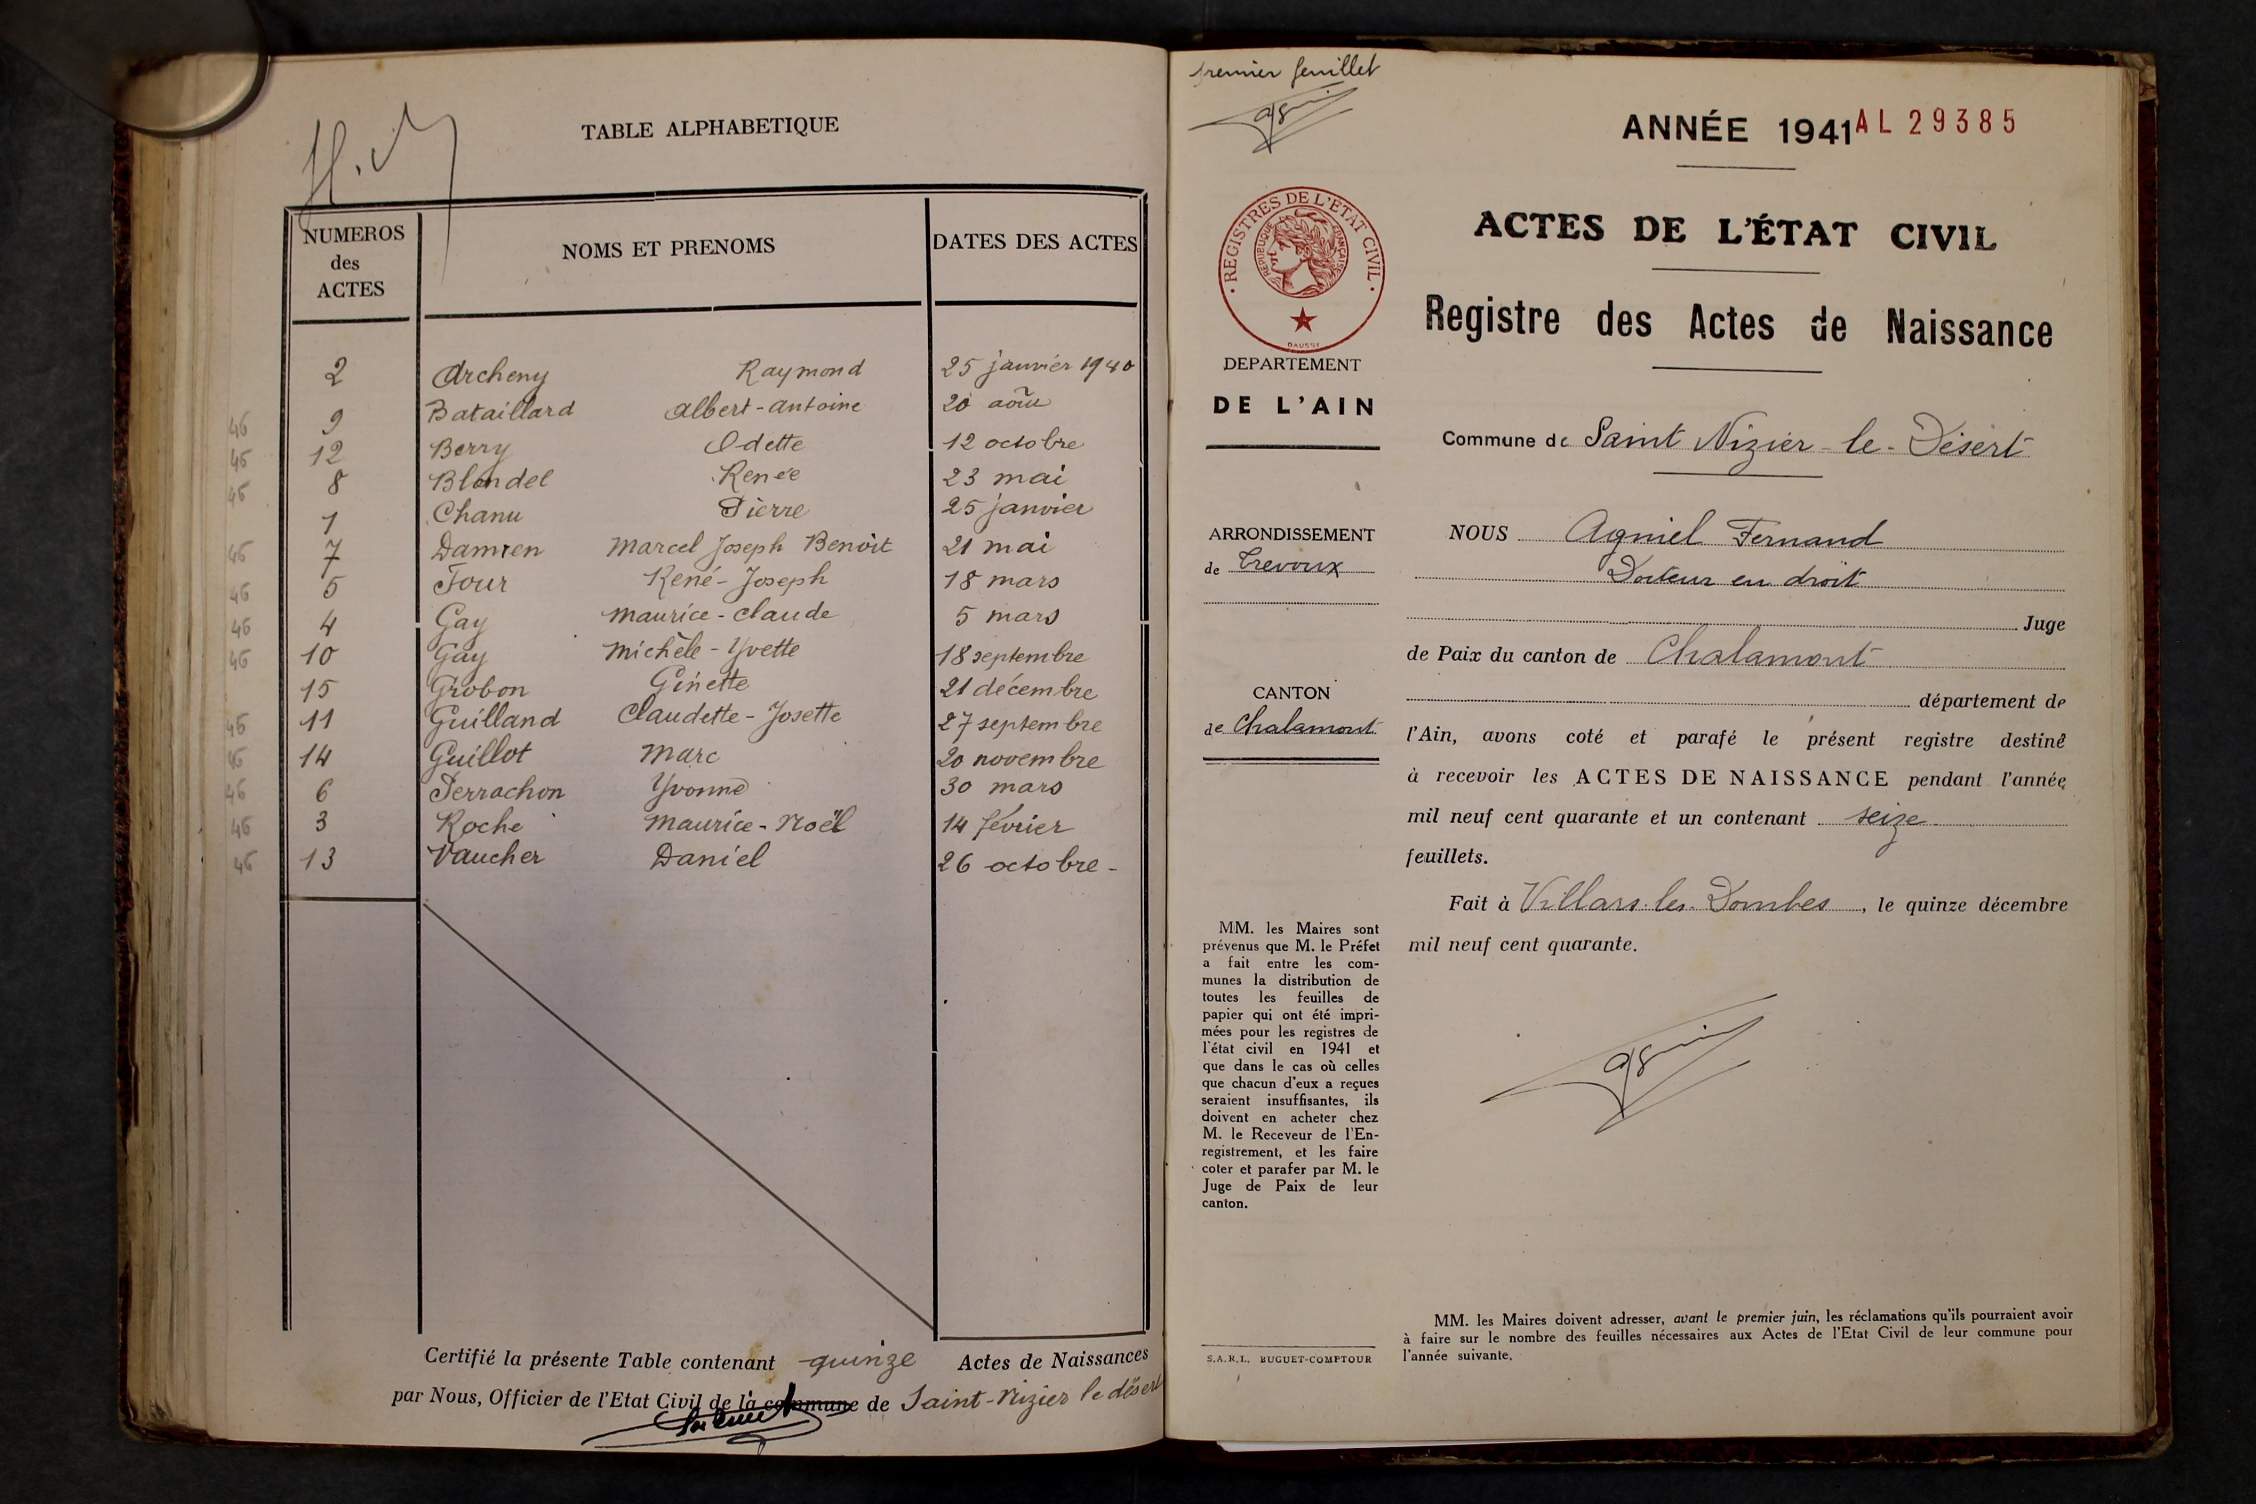 TABLE ALPHABETIQUE
NUMEROS des ACTES
NOMS ET PRENOMS
DATES DES ACTES
2 Archeny Raymond 25 janvier 1940
46 9 Bataillard Albert-Antoine 20 août
46 12 Berry Odette 12 octobre
46 8 Blondel Renée 23 mai
1 Chanu Pierre 25 janvier
46 7 Damien Marcel Joseph Benoit 21 mai
46 5 Four René-Joseph 18 mars
46 4 Gay Maurice-Claude 5 mars
46 10 Gay Michèle-Yvette 18 septembre
15 Grobon Ginette 21 décembre
46 11 Guilland Claudette-Josette 27 septembre
46 14 Guillot Marc 20 novembre
46 6 Perrachon Yvonne 30 mars
46 3 Roche Maurice-Noël 14 février
46 13 Vaucher Daniel 26 octobre-
Certifié la présente Table contenant quinze Actes de Naissances
par Nous, Officier de l'Etat Civil de la commune de Saint-Nizier le désert
premier feuillet
ANNÉE 1941 AL 29385
ACTES DE L'ÉTAT CIVIL
Registre des Actes de Naissance
REGISTRES DE L'ETAT CIVIL
REPUBLIQUE FRANÇAISE
DAUSSY
DEPARTEMENT
DE L'AIN
Commune de Saint Nizier-le-Désert
ARRONDISSEMENT
de Trevoux
CANTON
de Chalamont
NOUS Agniel Fernand
Docteur en droit
Juge
de Paix du canton de Chalamont
département de
l'Ain, avons coté et parafé le présent registre destiné
à recevoir les ACTES DE NAISSANCE pendant l'année
mil neuf cent quarante et un contenant seize
feuillets.
Fait à Villars-les-Dombes, le quinze décembre
mil neuf cent quarante.
MM. les Maires sont
prévenus que M. le Préfet
a fait entre les com-
munes la distribution de
toutes les feuilles de
papier qui ont été impri-
mées pour les registres de
l'état civil en 1941 et
que dans le cas où celles
que chacun d'eux a reçues
seraient insuffisantes, ils
doivent en acheter chez
M. le Receveur de l'En-
registrement, et les faire
coter et parafer par M. le
Juge de Paix de leur
canton.
S.A.R.L. BUGUET-COMPTOUR
MM. les Maires doivent adresser, avant le premier juin, les réclamations qu'ils pourraient avoir
à faire sur le nombre des feuilles nécessaires aux Actes de l'Etat Civil de leur commune pour
l'année suivante.